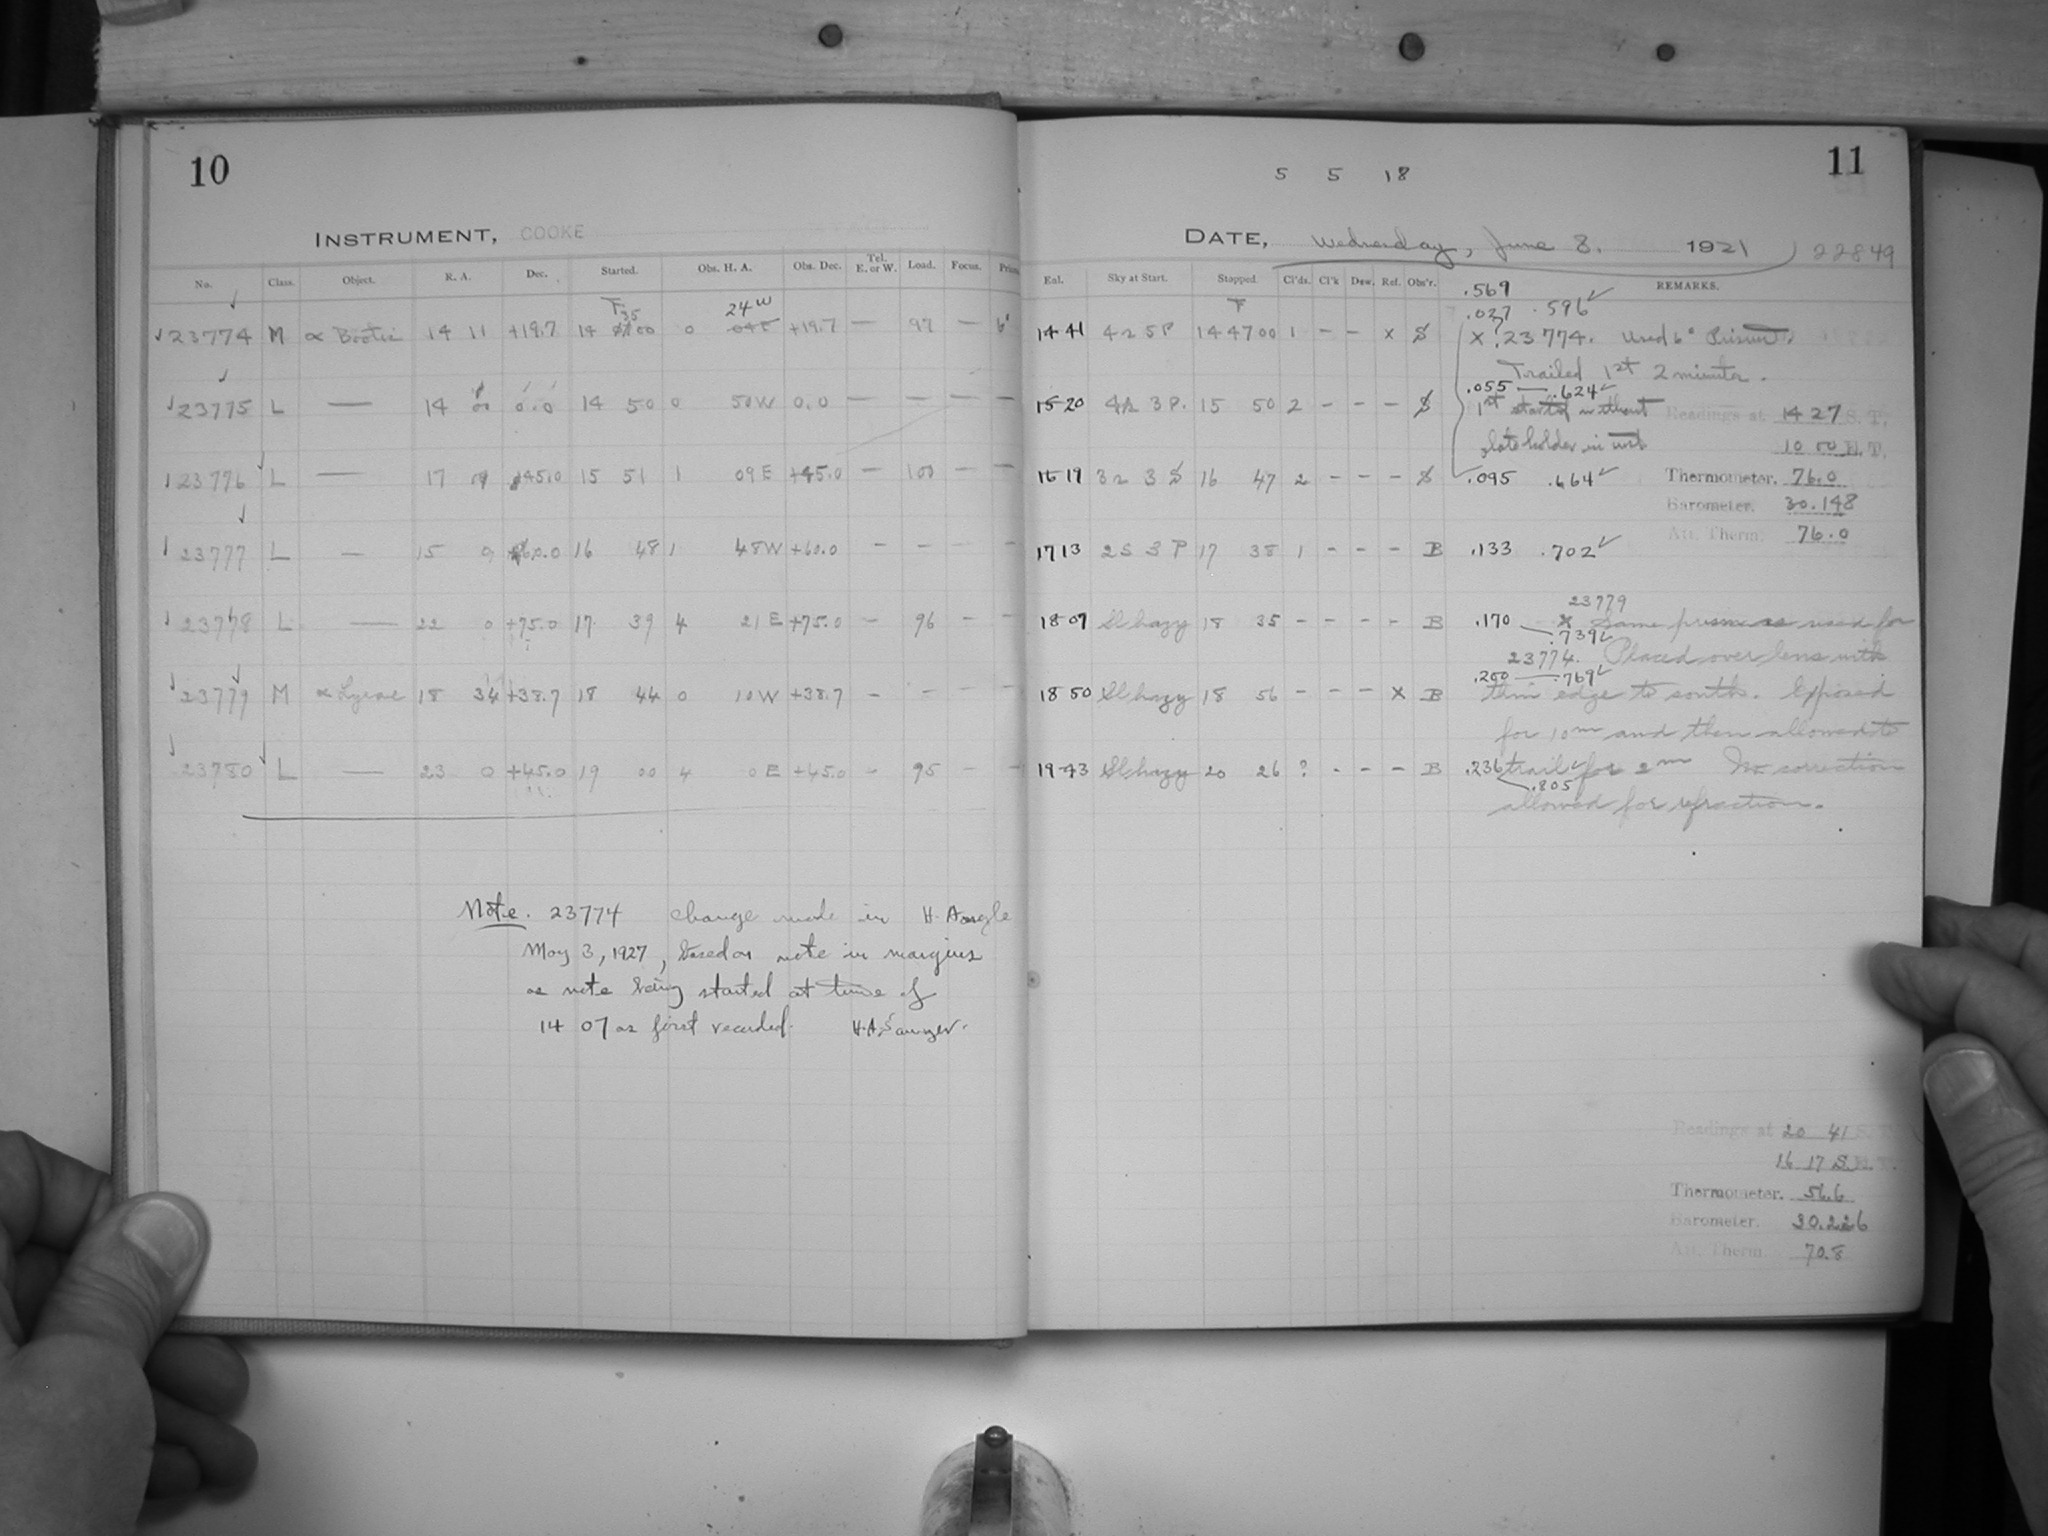 10
INSTRUMENT, COOKE
No. Class. Object. R. A. Dec. Started. Obs. H. A. Obs. Dec. Tel. E. or W. Load. Focus.
35 24 W
23774 M α Bootis 14 11 +19.7 14 00 0 04E +19.7 — 97 — 6°
23775 L — 14 00 0.0 14 50 0 50W 0.0 — — — —
23776 L — 17 0 +45.0 15 51 1 09 E +45.0 — 100 — —
23777 L — 15 0 +60.0 16 48 1 48W +60.0 — — — —
23778 L — 22 0 +75.0 17 39 4 21 E +75.0 — 96 — —
23779 M α Lyrae 18 34 +38.7 18 44 0 10W +38.7 — — — —
23780 L — 23 0 +45.0 19 00 4 0 E +45.0 — 95 — —
Note. 23774 change made in H. Angle
May 3, 1927, based on note in margins
as note being started at time of
14 07 as first recorded. H.A. Sawyer.
11
5 5 18
DATE, Wednesday, June 8. 1921 22849
Sky at Start. Stopped. Cl'ds. Cl'k Dew. Ref. Obs'r. REMARKS.
.569
.027 .596 ✓
14 41 4 2 5 P 14 47 00 1 – – x S x 23774. Used 6° Prism.
Trailed 1st 2 minutes.
.055 — .624 ✓
15 20 3 P. 15 50 2 – – – S 1st started without Readings at 14 27 S. T.
plate holder in 10 00 E. T.
16 19 3 2 3 S 16 47 2 – – – S .095 .664 ✓ Thermometer. 76.0
Barometer. 30.148
17 13 2 S 3 P 17 38 1 – – – B .133 .702 ✓ Att. Therm. 76.0
23779
18 07 Sl hazy 18 35 – – – – B .170 x Same prism as used for
.739 ✓
23774. Placed over lens with
.200 — .769 ✓
18 50 Sl hazy 18 56 – – – x B thin edge to south. Exposed
for 10m and then allowed to
19 43 Sl hazy 20 26 ? – – – B .236 trail for 2m No correction
.805
allowed for refraction.
Readings at 20 41 S. T.
16 17 S.
Thermometer. 56.6
Barometer. 30.226
Att. Therm. 70.8